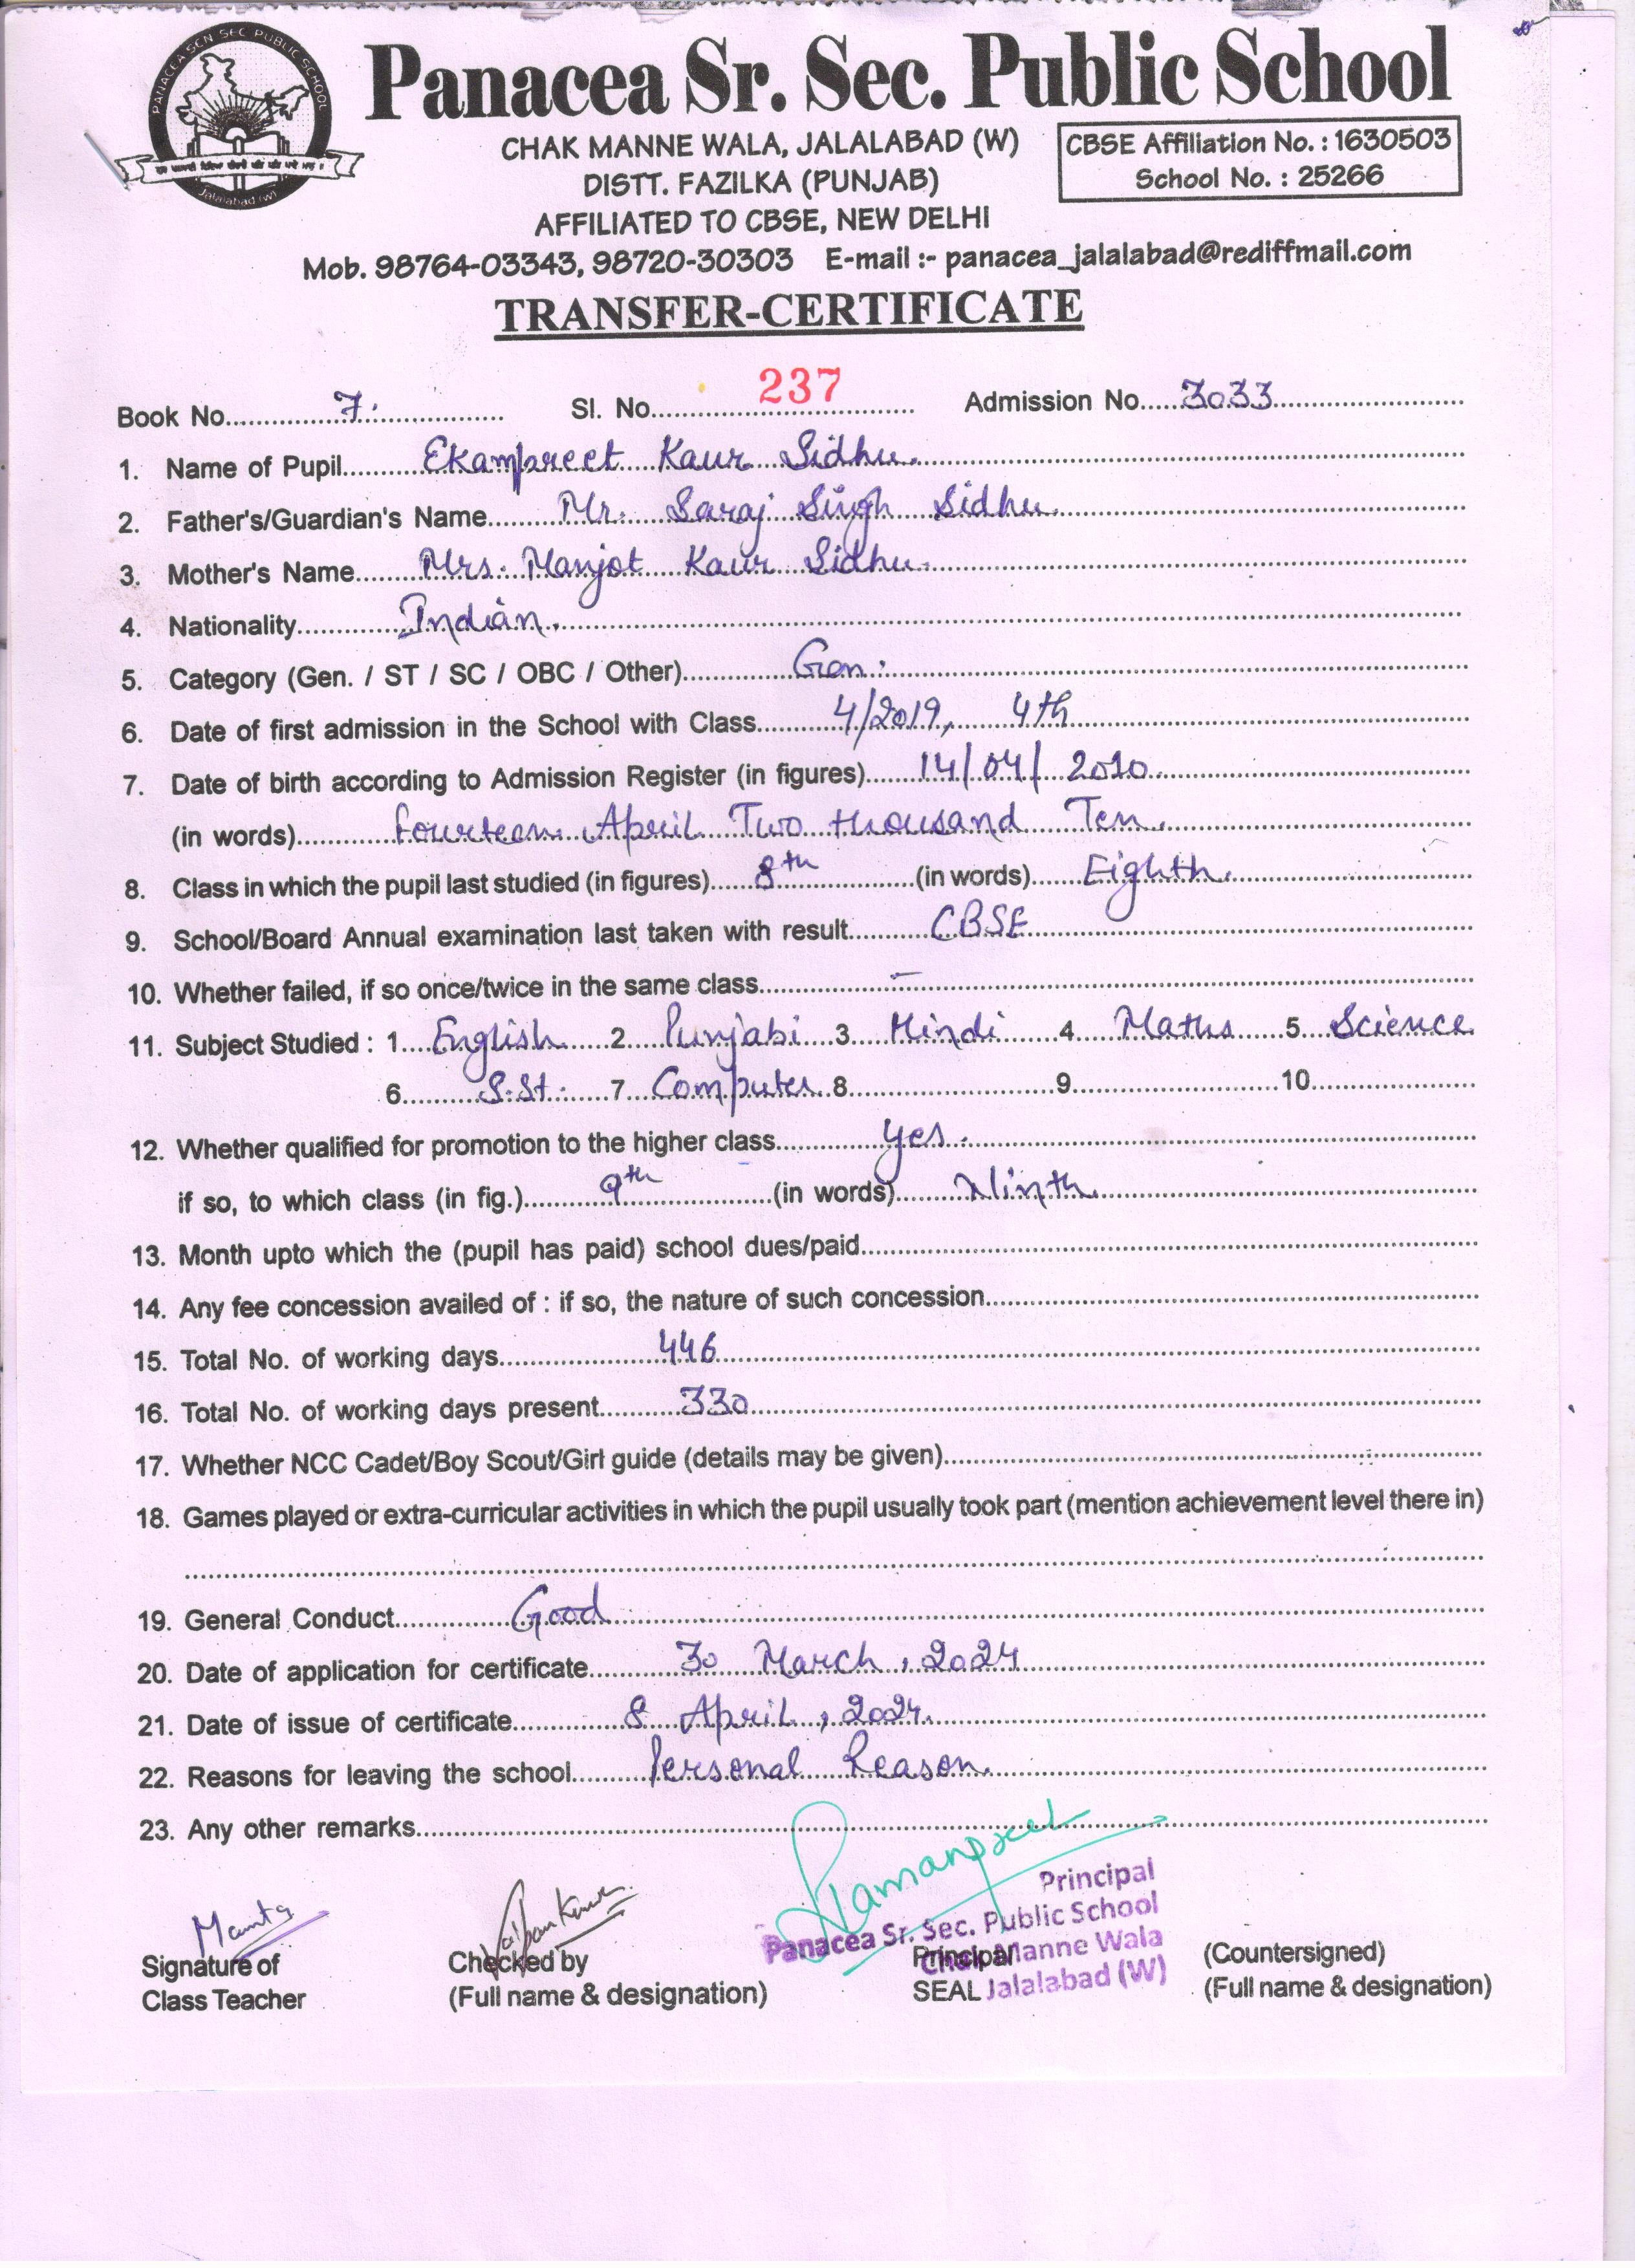 PANACEA SCN SEC PUBLIC SCHOOL
Jalalabad (W)
Panacea Sr. Sec. Public School
CHAK MANNE WALA, JALALABAD (W)
DISTT. FAZILKA (PUNJAB)
AFFILIATED TO CBSE, NEW DELHI
CBSE Affiliation No. : 1630503
School No. : 25266
Mob. 98764-03343, 98720-30303 E-mail :- panacea_jalalabad@rediffmail.com
TRANSFER-CERTIFICATE
Book No. 7. Sl. No. 237 Admission No. 3033
1. Name of Pupil Ekampreet Kaur Sidhu.
2. Father's/Guardian's Name Mr. Saraj Singh Sidhu.
3. Mother's Name Mrs. Manjot Kaur Sidhu.
4. Nationality Indian.
5. Category (Gen. / ST / SC / OBC / Other) Gen.
6. Date of first admission in the School with Class 4/2019, 4th
7. Date of birth according to Admission Register (in figures) 14/04/2010.
(in words) Fourteen April Two thousand Ten.
8. Class in which the pupil last studied (in figures) 8th (in words) Eighth.
9. School/Board Annual examination last taken with result CBSE
10. Whether failed, if so once/twice in the same class —
11. Subject Studied : 1 English 2 Punjabi 3 Hindi 4 Maths 5. Science
6 S.St. 7 Computer 8 9 10
12. Whether qualified for promotion to the higher class yes.
if so, to which class (in fig.) 9th (in words) Ninth.
13. Month upto which the (pupil has paid) school dues/paid
14. Any fee concession availed of : if so, the nature of such concession
15. Total No. of working days 446
16. Total No. of working days present 330
17. Whether NCC Cadet/Boy Scout/Girl guide (details may be given)
18. Games played or extra-curricular activities in which the pupil usually took part (mention achievement level there in)
19. General Conduct Good
20. Date of application for certificate 30 March, 2024
21. Date of issue of certificate 8 April, 2024.
22. Reasons for leaving the school Personal Reason.
23. Any other remarks
Mamta
Ramanpreet
Principal
Panacea Sr. Sec. Public School
Chak Manne Wala
Jalalabad (W)
Signature of Checked by Principal (Countersigned)
Class Teacher (Full name & designation) SEAL (Full name & designation)